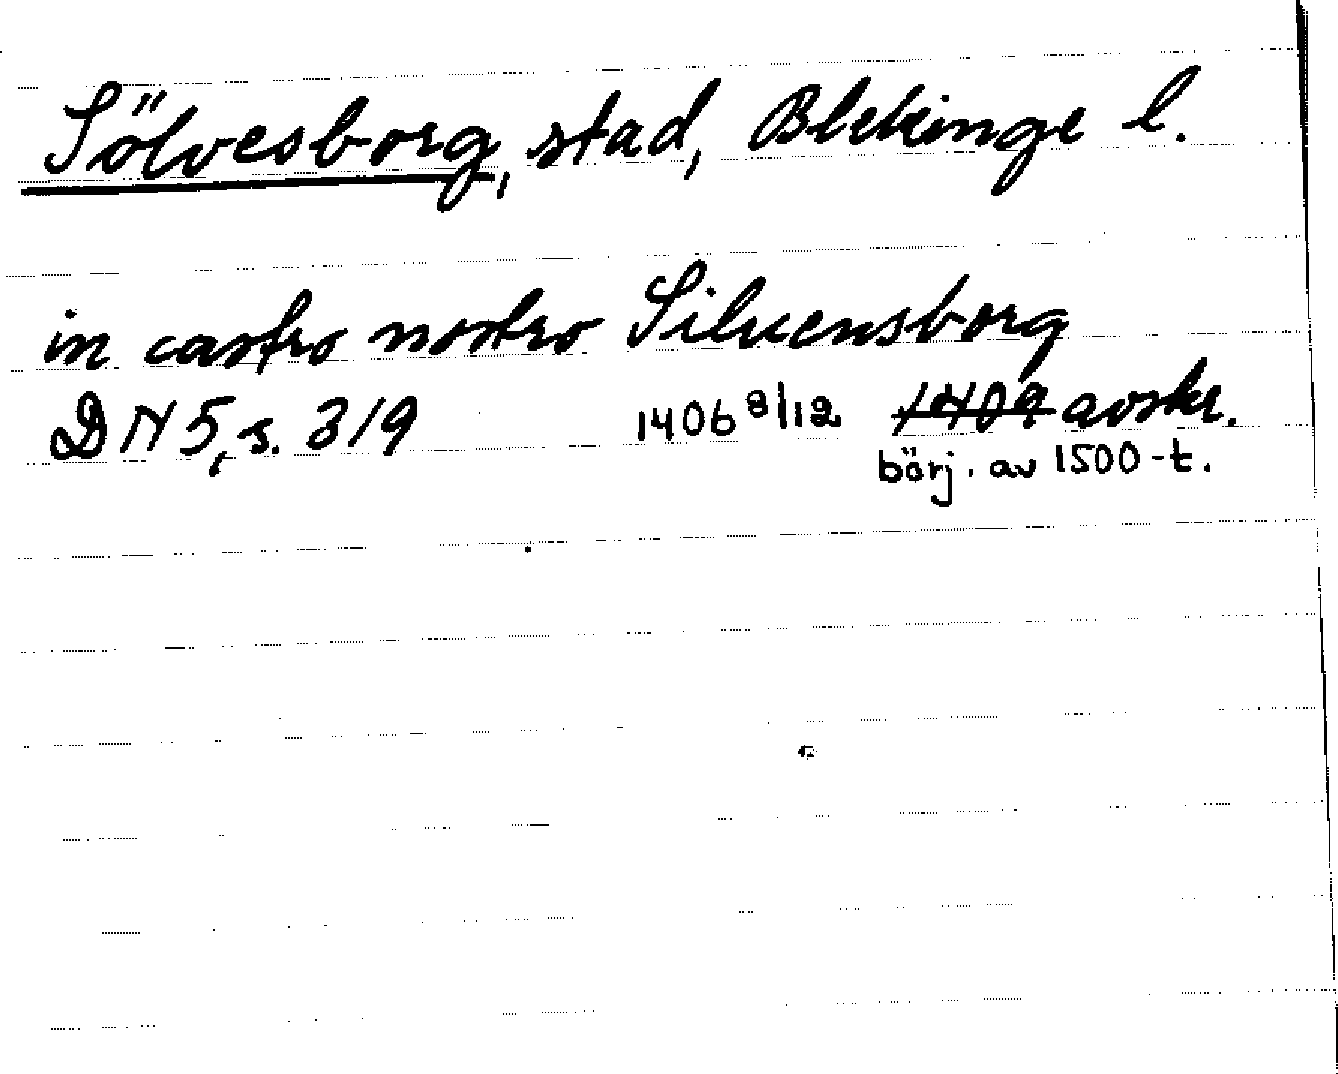 Sölvesborg, stad, Blekinge l.
in castro nostro Siluensborg
DN 5, s. 319 1406 8/12 1409 avskr.
börj. av 1500-t.